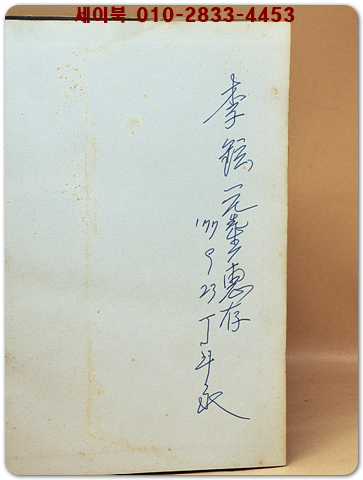 세이북 010-2833-4453
李鎔元童惠存
'77 9 23 丁斗永